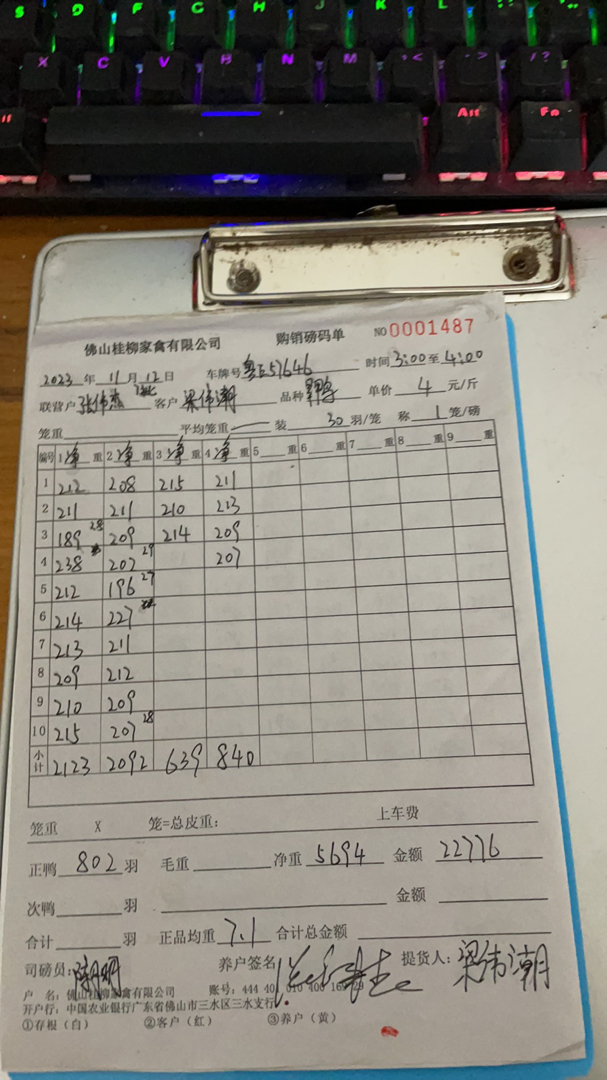 S D F G H J K L
X C V B N M < > / ?
Alt Fn
佛山桂柳家禽有限公司 购销磅码单 NO 0001487
2023 年 11 月 12 日 车牌号 粤E57646 时间 3:00 至 4:00
联营户 张伟杰 客户 梁伟潮 品种 单价 4 元/斤
笼重 平均笼重 装 30 羽/笼 称 1 笼/磅
编号 1 净 重 2 净 重 3 净 重 4 净 重 5 重 6 重 7 重 8 重 9 重
1 212 208 215 211
2 211 211 210 213
3 189 28 209 214 209
4 238 207 29 207
5 212 196 27
6 214 227
7 213 211
8 209 212
9 210 209
10 215 207 28
小计 2123 2092 639 840
笼重 X 笼=总皮重: 上车费
正鸭 802 羽 毛重 净重 5694 金额 22776
次鸭 羽 金额
合计 羽 正品均重 7.1 合计总金额
司磅员: 养户签名 提货人: 梁伟潮
户 名: 佛山桂柳家禽有限公司 账号: 444 40 010 400
开户行: 中国农业银行广东省佛山市三水区三水支行
①存根（白） ②客户（红） ③养户（黄）